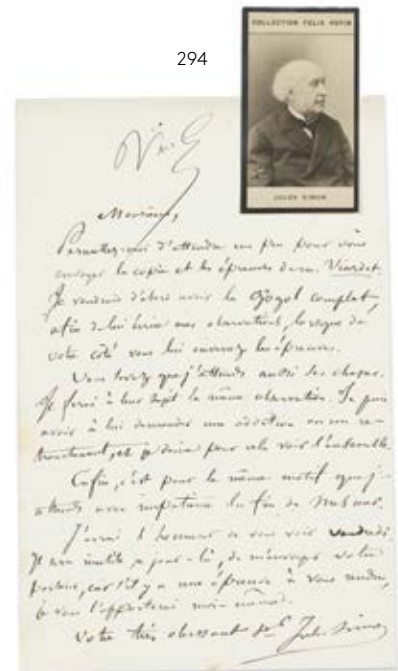 294
COLLECTION FELIX POTIN
JULES SIMON
Monsieur,
Permettez-moi d'attendre un peu pour vous
envoyer la copie et les épreuves de m. Viardot.
Je voudrais d'abord avoir le Gogol complet,
afin de lui écrire mes observations, lorsque de
votre côté vous lui enverrez les épreuves.
Vous savez que j'attends aussi
Je ferai à leur sujet la même observation. Je puis
avoir à lui demander une addition ou un re-
tranchement, et je désire pour cela voir l'ensemble.
Enfin, c'est pour le même motif que j'-
attends avec impatience la fin de
J'aurai l'honneur de vous voir vendredi
Il est inutile ce jour-là, de m'envoyer votre
porteur, car s'il y a une épreuve à vous rendre,
je vous l'apporterai moi-même.
Votre très obéissant
Jules Simon